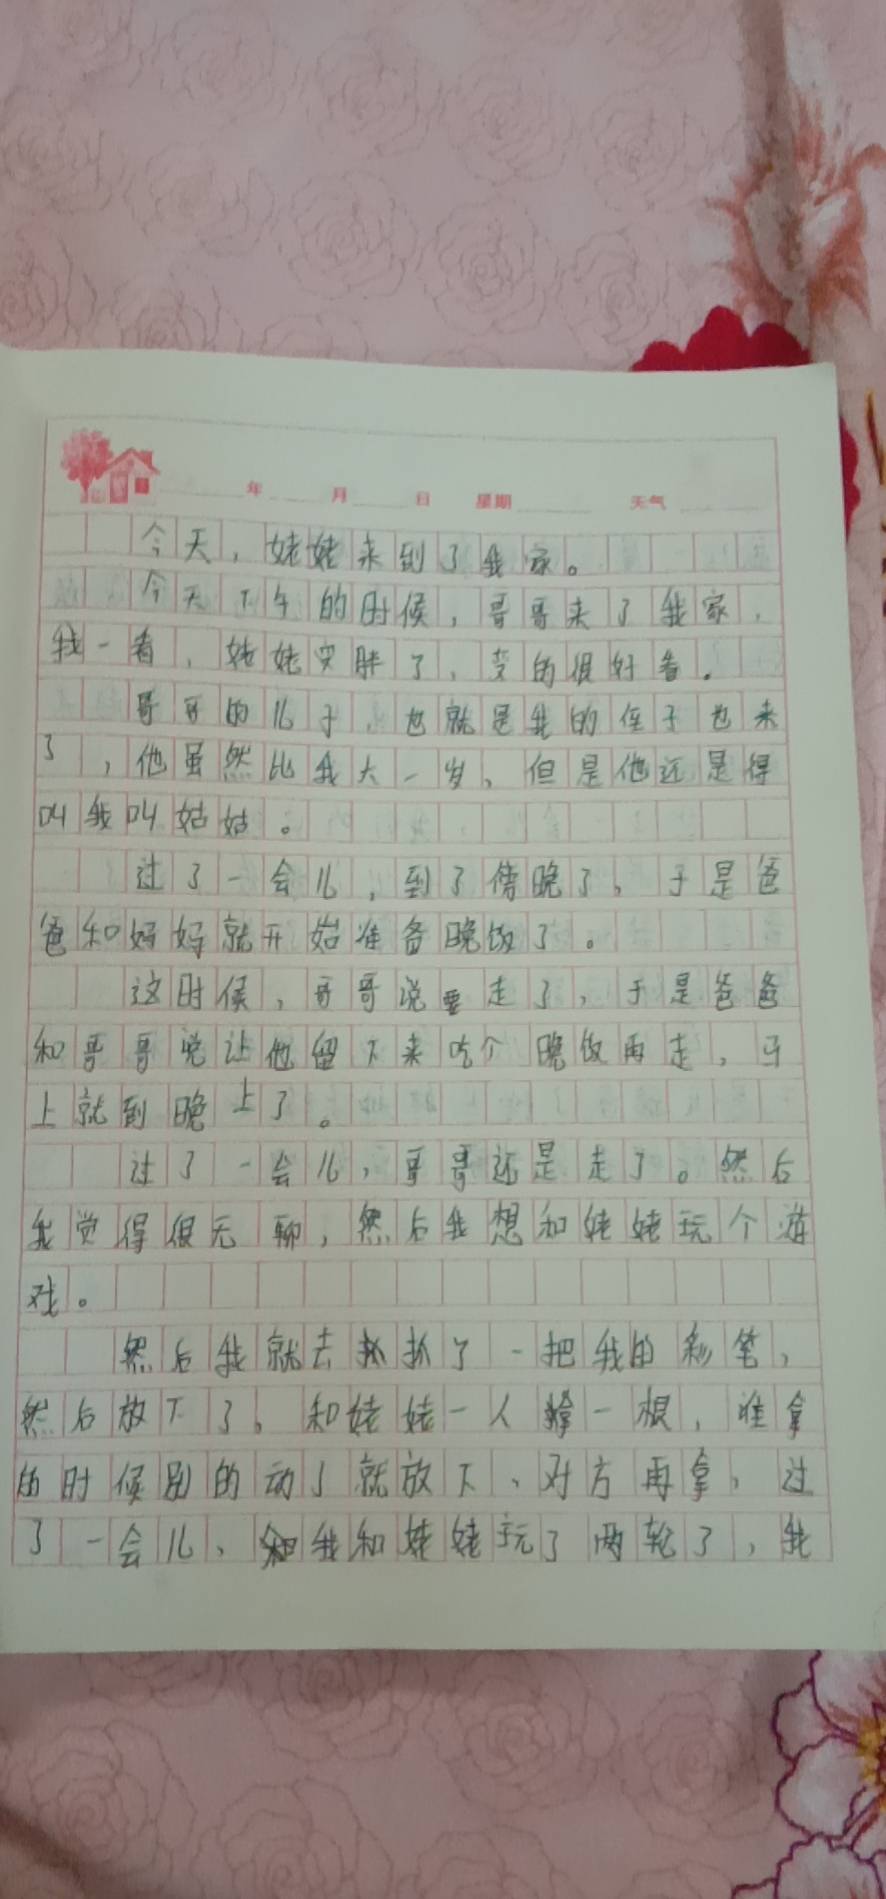 年 月 日 星期 天气
今天，姥姥来到了我家。
今天下午的时候，哥哥来了我家，
我一看，姥姥变胖了，变的很好看。
哥哥的儿子，也就是我的侄子也来
了，他虽然比我大一岁，但是他还是得
叫我叫姑姑。
过了一会儿，到了傍晚了，于是爸
爸和妈妈就开始准备晚饭了。
这时候，哥哥说要走了，于是爸爸
和哥哥说让他留下来吃个晚饭再走，马
上就到晚上了。
过了一会儿，哥哥还是走了。然后
我觉得很无聊，然后我想和姥姥玩个游
戏。
然后我就去抓抓了一把我的彩笔，
然后放下了。和姥姥一人拿一根，谁拿
的时候别的动了就放下、对方再拿，过
了一会儿、我和姥姥玩了两轮了，我